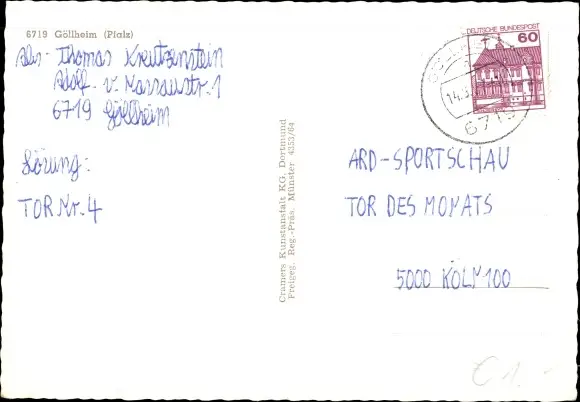 6719 Göllheim (Pfalz)
Abs- Thomas Kreutzenstein
Adolf- v. Nassaustr. 1
6719 Göllheim
Lösung:
TOR Nr. 4
Cramers Kunstanstalt KG, Dortmund
Freigeg. Reg.-Präs. Münster 4353/64
DEUTSCHE BUNDESPOST
60
6719
ARD-SPORTSCHAU
TOR DES MONATS
5000 KÖLN 100